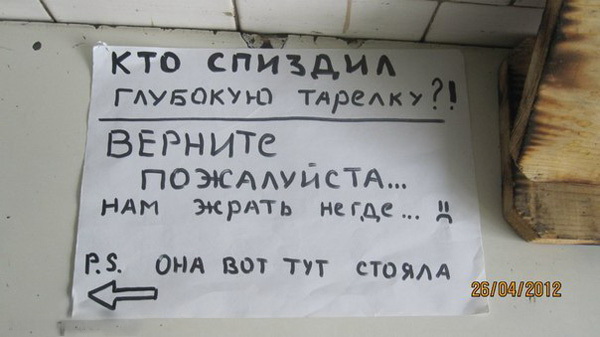 КТО СПИЗДИЛ
ГЛУБОКУЮ ТАРЕЛКУ?!
ВЕРНИТЕ
ПОЖАЛУЙСТА...
НАМ ЖРАТЬ НЕГДЕ... :(
P.S. ОНА ВОТ ТУТ СТОЯЛА
26/04/2012